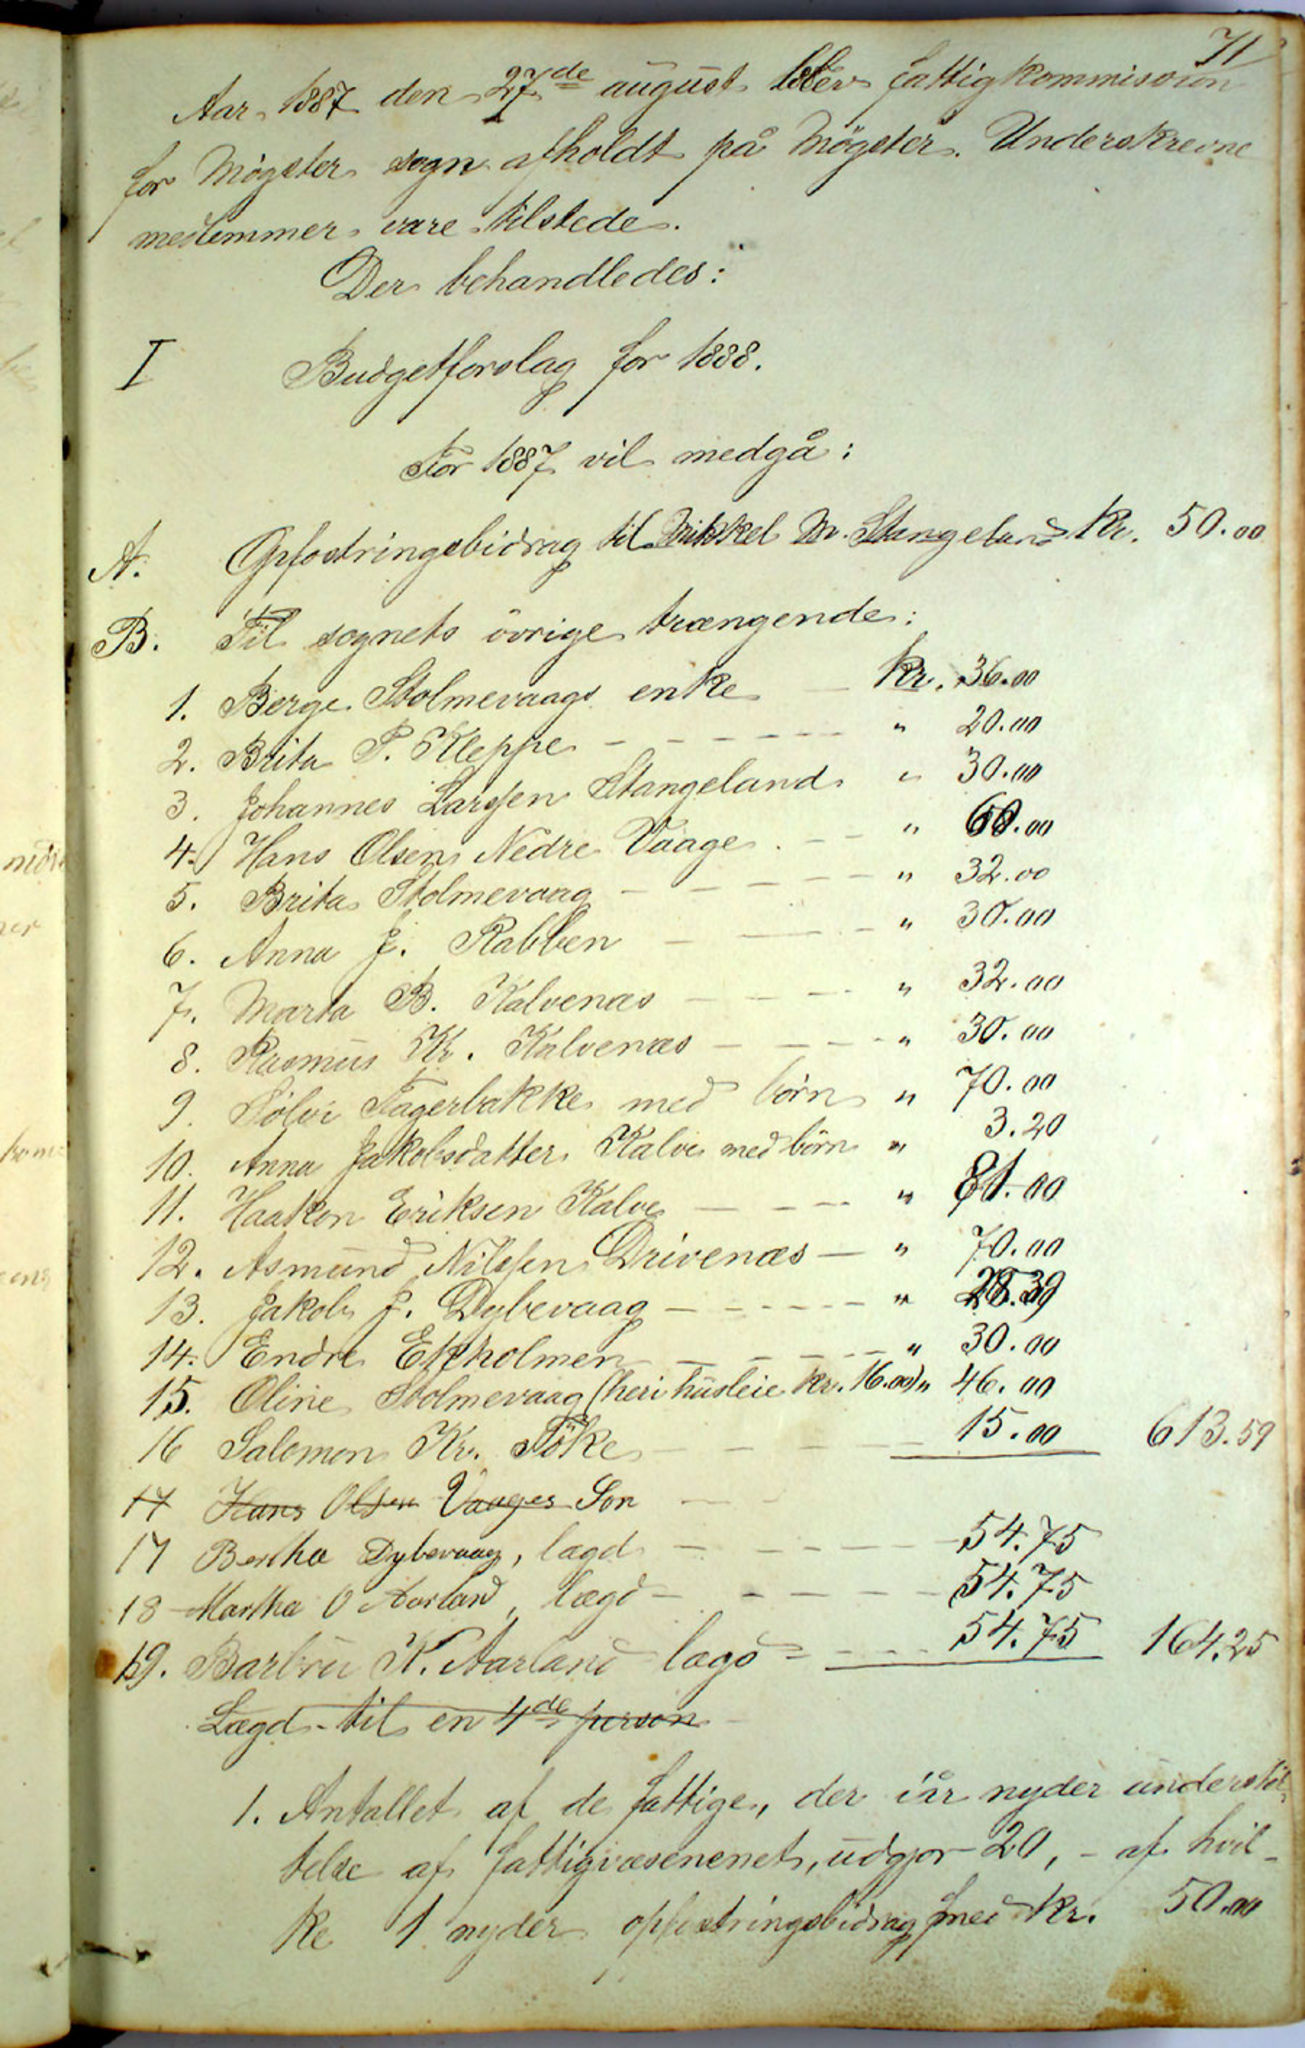 71
Aar 1887 den 27de august blev fattigkommisionen
for Mögster sogn afholdt på Mögster. Underskrevne
medlemmer vare tilstede.
Der behandledes:
I Budgetforslag for 1888.
For 1887 vil medgå:
A. Opfostringsbidrag til Mikkel M. Stangeland kr. 50.00
B. Til sognets övrige trængende:
1. Berge Stolmevaags enke — kr. 36.00
2. Brita P. Kleppe - - - - - " 20.00
3. Johannes Larssen Stangeland " 30.00
4. Hans Olsen Nedre Vaage. - - " 60.00
5. Brita Stolmevaag - - - - - " 32.00
6. Anna J. Rabben - - - - " 30.00
7. Marta B. Kalvenæs - - - - " 32.00
8. Rasmus Kr. Kalvenæs - - - - " 30.00
9. Sölvi Fagerbakke med börn " 70.00
10. Anna Jakobsdatter Kalve med börn " 3.20
11. Haakon Eriksen Kalve - - - - " 81.00
12. Asmund Nilssen Drivenæs — " 70.00
13. Jakob J. Dybevaag - - - - - " 28.39
14. Endre Ekholmen - - - - - " 30.00
15. Oline Stolmevaag (heri husleie kr. 16.00) " 46.00
16 Salomon Kr. Föke - - - - 15.00 613.59
17 Hans Olsen Vaages Son - -
17 Bertha Dybevaag, lægd - - - - - 54.75
18 Martha O Aarland, lægd - - - - - 54.75
19. Barbru K. Aarland lægd - - - - 54.75 164.25
Lægd til en 4de person
1. Antallet af de fattige, der iår nyder understöt-
telse af fattigvæsenenet, udgjor 20, - af hvil-
ke 1 nyder opfostringsbidrag med kr. 50.00